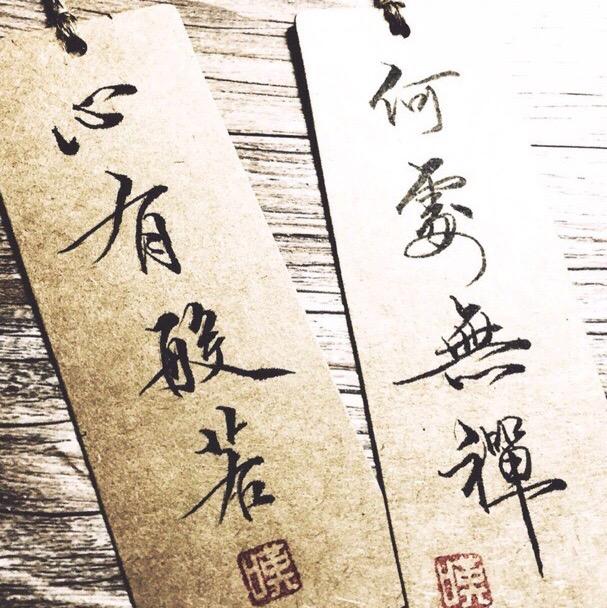 心有般若
何處無禪